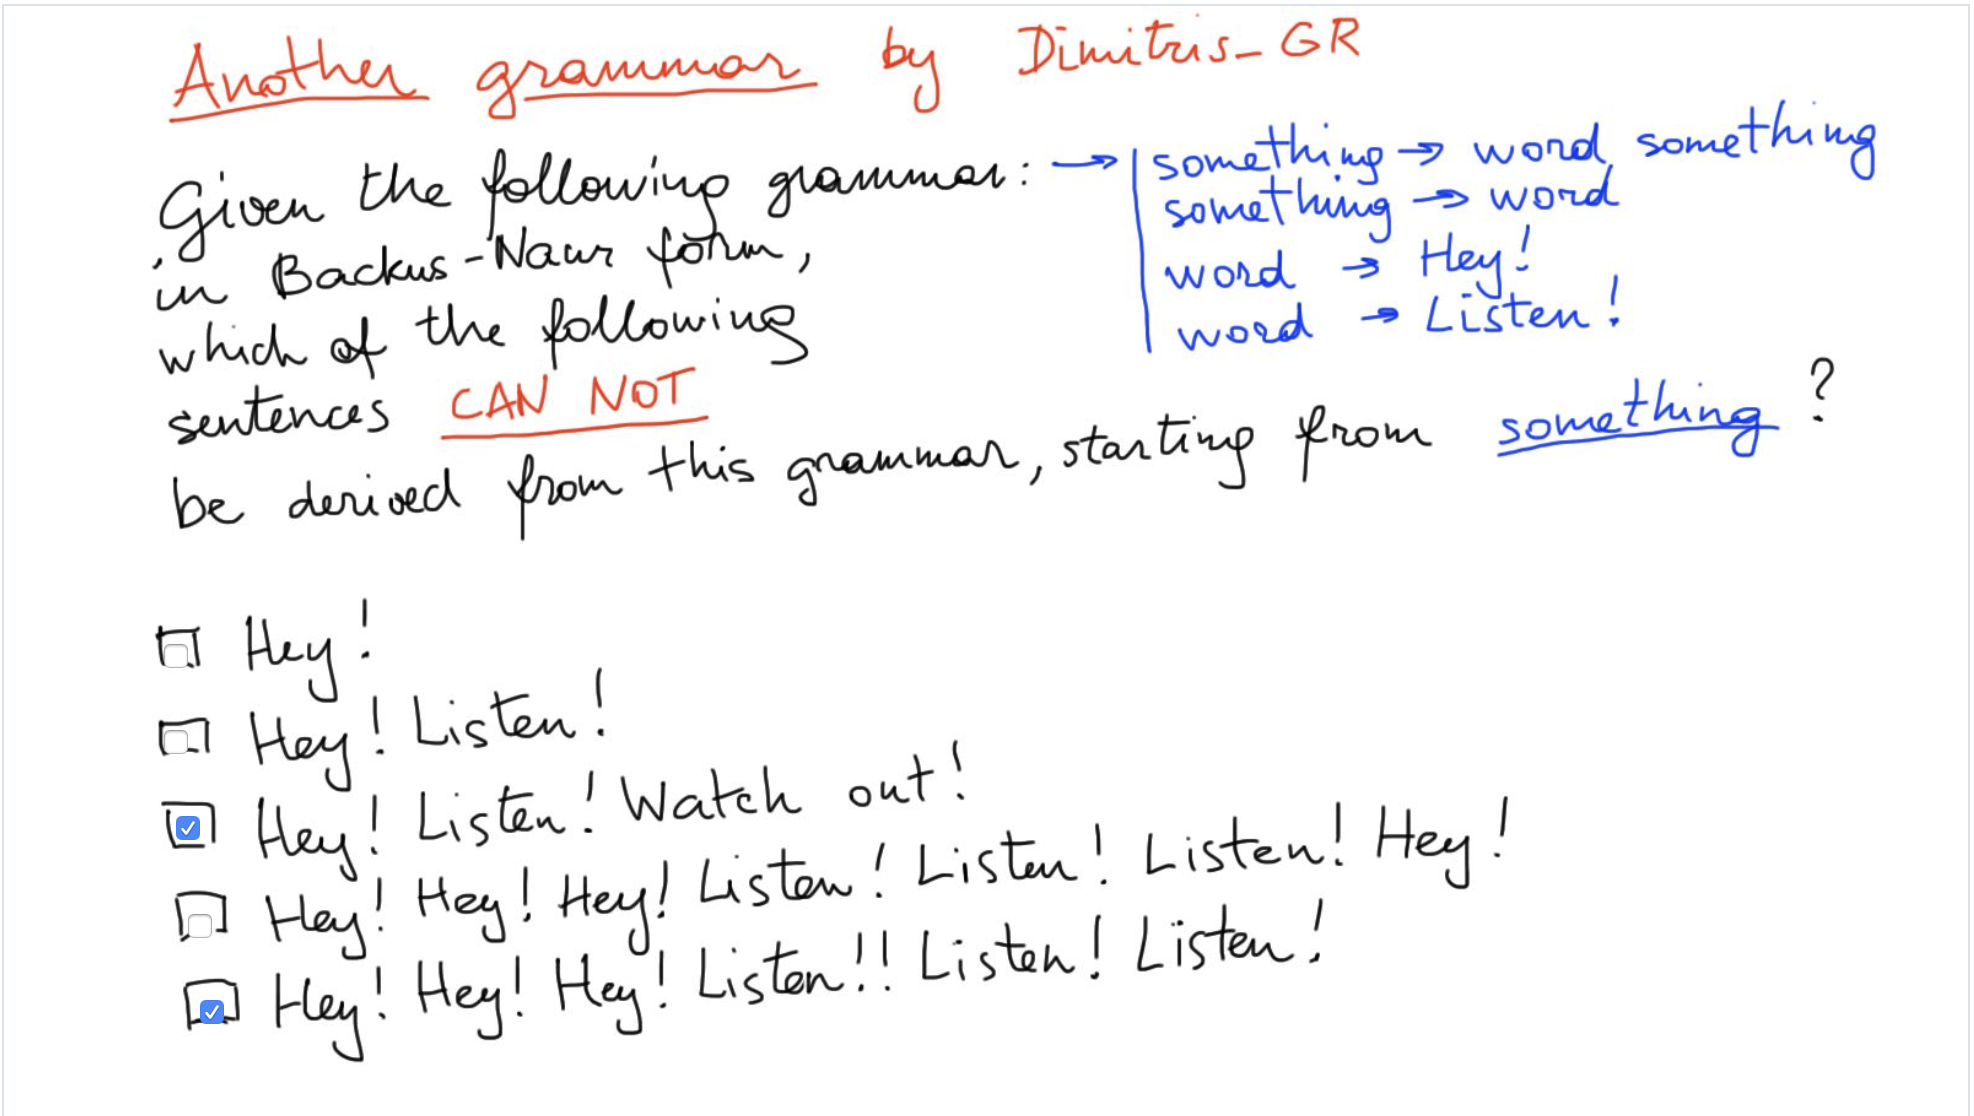 Another grammar by Dimitris_GR
Given the following grammar: → something → word something
something → word
in Backus-Naur form,
word → Hey!
which of the following
word → Listen!
sentences CAN NOT
be derived from this grammar, starting from something?
Hey!
Hey! Listen!
Hey! Listen! Watch out!
Hey! Hey! Hey! Listen! Listen! Listen! Hey!
Hey! Hey! Hey! Listen!! Listen! Listen!